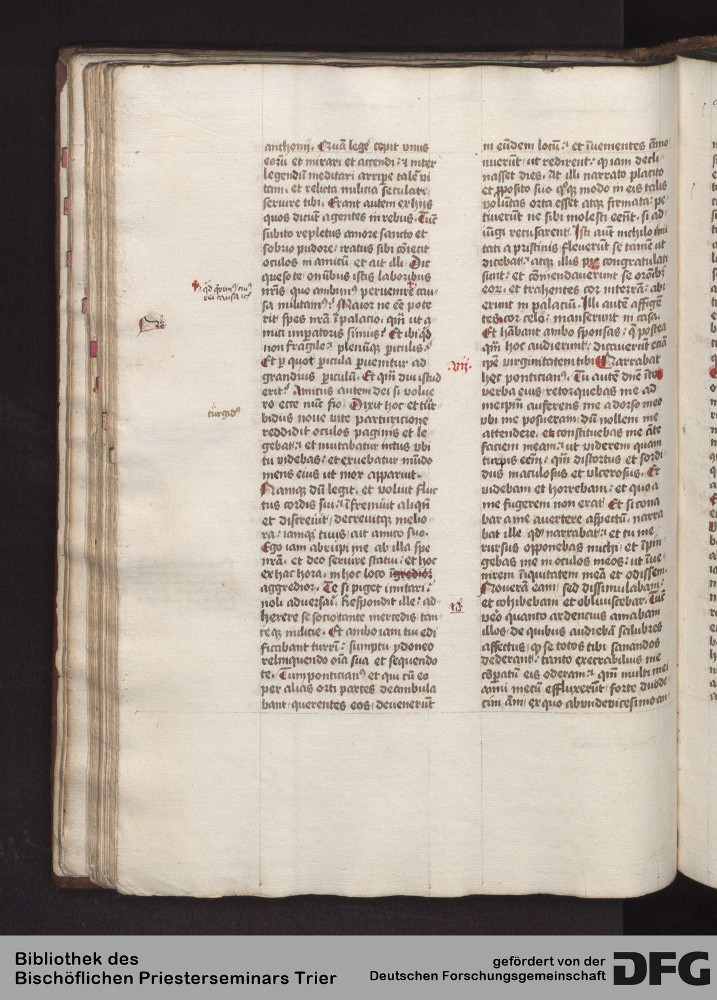 anthonij. Quā lege᷒ cepit vnus
eoꝝ et mirari et accendi: ⁊ inter
legendū meditari arripe talē vi
tam. et relicta milicia seculare
seruire tibi. Erant autem ex hijs
quos dicūt agentes in rebus. Tūc
subito repletus amore sancto et
sobrio pudore: iratus sibi cōiecit
oculos in amicū et ait illi. Dic
queso te oīnibus istis laboribus
nr̄is quo ambimꝰ peruenire cau
sa militamꝰ: Maior ne eē pote
rit spes nr̄a ī palacio. qm̄ vt a
mici impatoris simus: Et ibi qd
non fragile: plenūqꝫ piculis:
Et p quot picula puenitur ad
grandius piculū. Et qm̄ diu istud
erit: Amicus autem dei si volue
ro ecce nūc fio. Dixit hoc et tūr
bidus noue vite parturicione
reddidit oculos paginis et le
gebat: et mutabatur intus vbi
tu videbas: et exuebatur mūdo
mens eius ut mox apparuit.
Namqꝫ dū legit. et voluit fluc
tus cordis sui: īfremuit aliqn̄
et discreuit: decreuitqꝫ melio
ra: iamqꝫ tuus: ait amico suo.
Ego iam abrupi me ab illa spe
nr̄a. et deo seruire statui: et hoc
ex hac hora. in hoc loco īgredior
aggredior. Te si piget imitari:
noli aduersari. Respondit ille: ad
herere se sociū tante mercedis tan
teqꝫ milicie. Et ambo iam tui edi
ficabant turrī: sumptu ydoneo
relinquendo oīa sua et sequendo
te. Tum ponticianꝰ et qui cū eo
per alias orti partes deambula
bant: querentes eos: deuenerūt
in eūdem locū: et īuenientes āmo
nuerūt: ut redirent: qꝫ iam decli
nasset dies. At illi narrato placito
et ꝓposito suo qꝫqꝫ modo in eis talis
volūtas orta esset atqꝫ firmata: pe
tiuerūt ne sibi molesti eēnt. si ad
iūgi recusarent. Isti aūt nichilo mu
tati a pristinis fleuerūt se tamē ut
dicebat: atqꝫ illis pie congratulati
sunt: et cōmendauerunt se orōibꝫ
eoꝝ. et trahentes cor in terrā: abi
erunt in palaciū. Illi autē affigen
tes cor celo: manserūt in casa.
Et hābant ambo sponsas: q̄ postea
qm̄ hoc audierūt: dicauerūt etiā
ip̄e virginitatem tibi. Narrabat
hec ponticianꝰ. Tu autē dn̄e īter
verba eius: retorquebas me ad
meip̄m auferens me a dorso meo
vbi me posueram: dū nollem me
attendere. et constituebas me āte
faciem meam: ut viderem quam
turpis eēm: qm̄ distortus et sordi
dus maculosus et vlcerosus. Et
videbam et horrebam: et quo a
me fugerem non erat. Et si cona
bar a me auertere aspectū. narra
bat ille qd narrabat: et tu me
rursus opponebas michi: et īpin
gebas me in oculos meos: ut īue
nirem īiquitatem meā et odissem.
Noueram eam: sed dissimulabam:
et cohibebam et obliuiscebar. Tūc
vēo quanto ardencius amabam
illos: de quibus audiebā salubres
affectus: qꝫ se totos tibi sanandos
dederant: tanto execrabilius me
cōpatū eis oderam: qm̄ multi mei
anni mecū effluxerūt: forte duode
cim ān: ex quo ab vndeuicesimo an
turgidꝰ
.vij.
Bibliothek des
Bischöflichen Priesterseminars Trier
gefördert von der
Deutschen Forschungsgemeinschaft
DFG